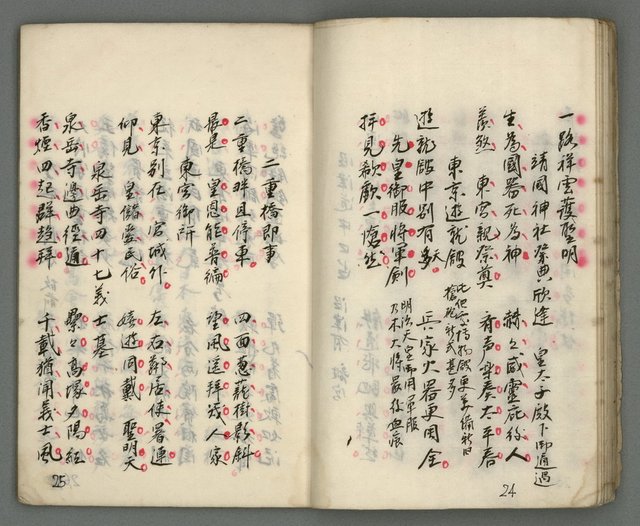 一路祥雲護聖明
靖國神社祭典欣逢 皇太子殿下御通過
生為國器死為神 赫々威靈庇後人
義烈 東宮親祭奠 斉声樂奏太平春
東京遊就館
遊就館中別有天 兵家火器更周全
先皇御服將軍劍 明治天皇御用軍服 乃木大將最後血痕
拜見欷歔一愴然
24
二重橋即事
二重橋畔且停車 四面蔥蘢樹影斜
最是 皇恩能普徧 望風遥拜幾人家
東宮御所
東京別在 宮城外 左右鄰居使署連
仰見 皇儲盛民俗 嬉遊同戴 聖明天
泉岳寺四十七義士墓
泉岳寺邊曲徑通 纍々高塚夕陽紅
香煙四起群趨拜 千載猶聞義士風
25